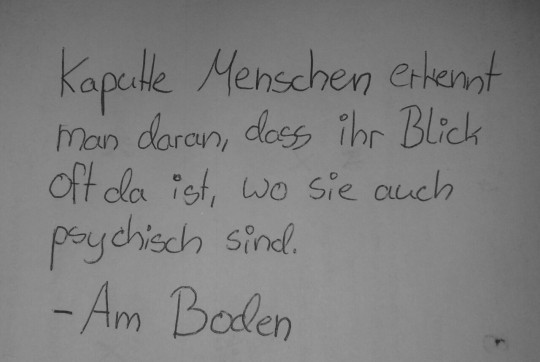 Kaputte Menschen erkennt
man daran, dass ihr Blick
oft da ist, wo sie auch
psychisch sind.
- Am Boden